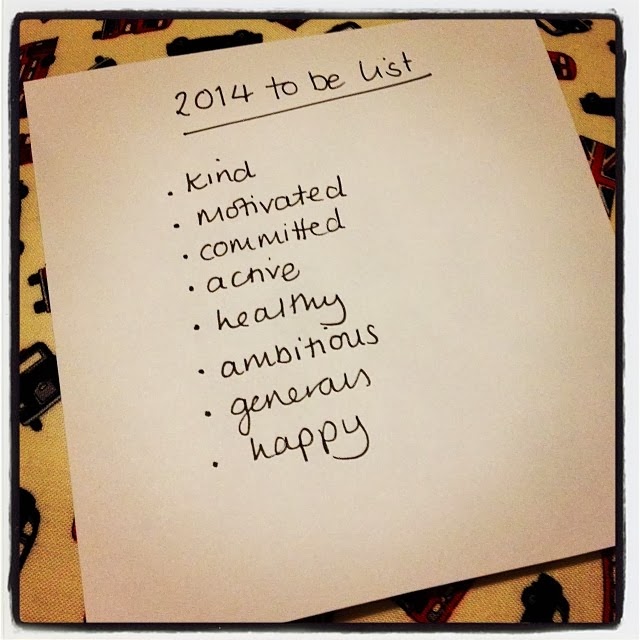 2014 to be list
. kind
. motivated
. committed
. active
. healthy
. ambitious
. generous
. happy